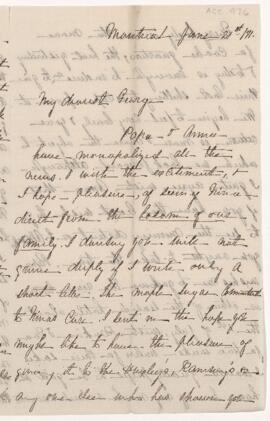 ACC. 926
Montreal June 28th/71.
My dearest Georgy
Papa & Annie
have monopolized all the
news. & with the excitement, &
I hope - pleasure, of seeing
direct from the bosom of our
family. I daresay you will not
grieve deeply if I write only a
short letter. The maple sugar
to Care. I sent in the hope you
might like to have the pleasure of
giving it to the Ramsay's or
any one else who has shown you